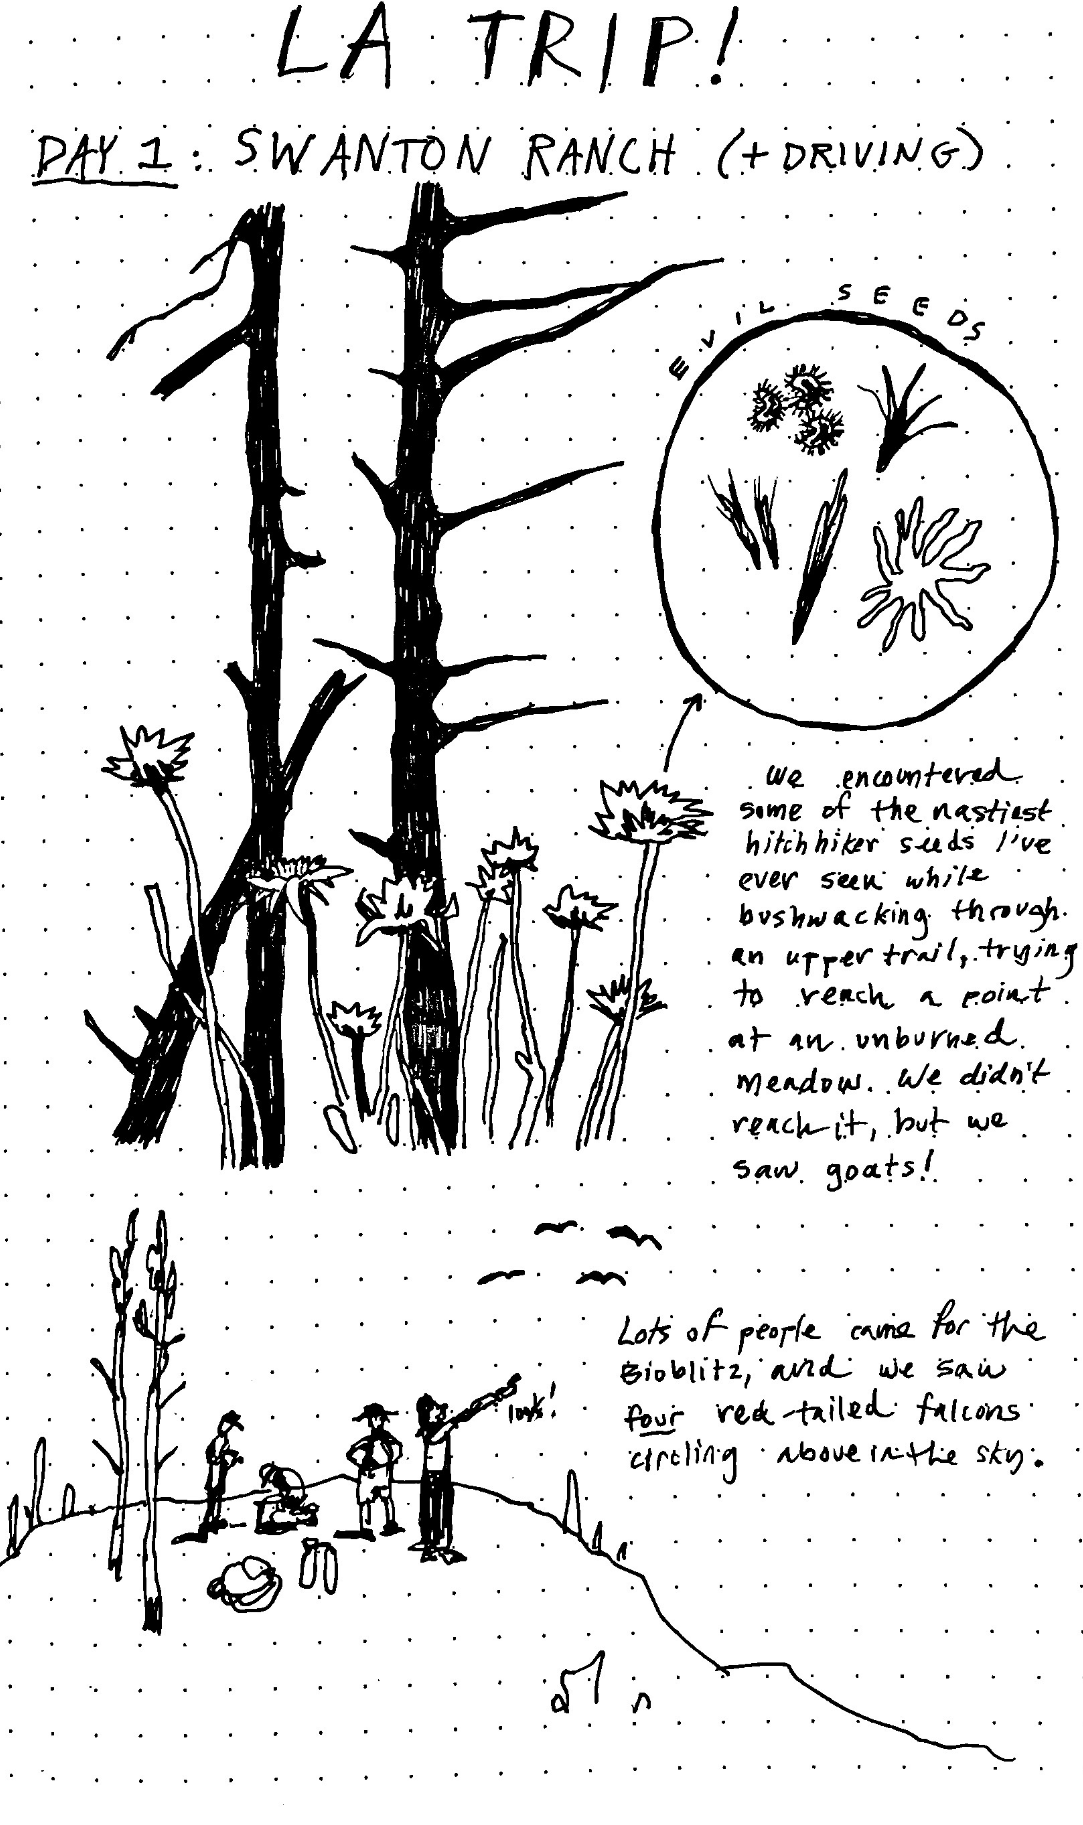 LA TRIP!
DAY 1: SWANTON RANCH (+ DRIVING)
EVIL SEEDS
We encountered
some of the nastiest
hitchhiker seeds I've
ever seen while
bushwacking through
an upper trail, trying
to reach a point
at an unburned
meadow. We didn't
reach it, but we
saw goats!
Lots of people came for the
Bioblitz, and we saw
four red-tailed falcons
circling above in the sky.
look!